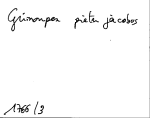 Grimonpon pieter jacobus
1766/3